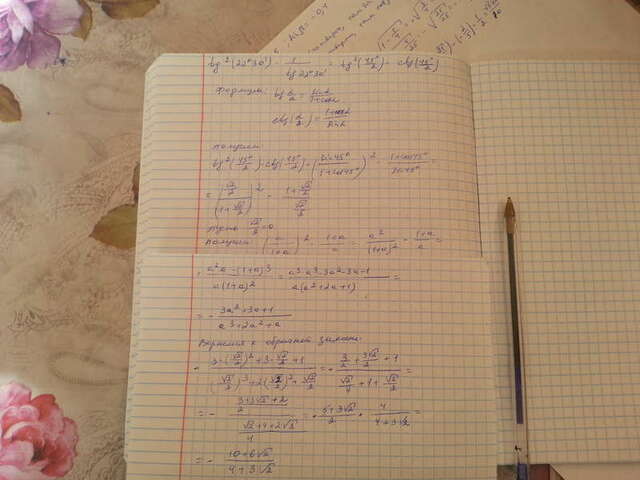 tg²(22°30') - 1/tg 22°30' = tg²(45°/2) - ctg(45°/2)
Формулы: tg α/2 = sin α/(1+cos α)
ctg(α/2) = (1+cos α)/sin α
получим:
tg²(45°/2) - ctg(45°/2) = (sin 45°/(1+cos 45°))² - (1+cos 45°)/sin 45° =
= ((√2/2)/(1+√2/2))² - (1+√2/2)/(√2/2)
пусть √2/2 = a
получим (a/(1+a))² - (1+a)/a = a²/(1+a)² - (1+a)/a =
= (a²a - (1+a)³)/(a(1+a)²) = (a³-a³-3a²-3a-1)/(a(a²+2a+1)) =
= - (3a²+3a+1)/(a³+2a²+a)
Вернемся к обратной замене:
- (3·(√2/2)²+3·√2/2+1)/((√2/2)³+2(√2/2)²+√2/2) = - (3/2+3√2/2+1)/(√2/4+1+√2/2) =
= - ((3+3√2+2)/2)/((√2+4+2√2)/4) = - (5+3√2)/2 · 4/(4+3√2) =
= - (10+6√2)/(4+3√2)